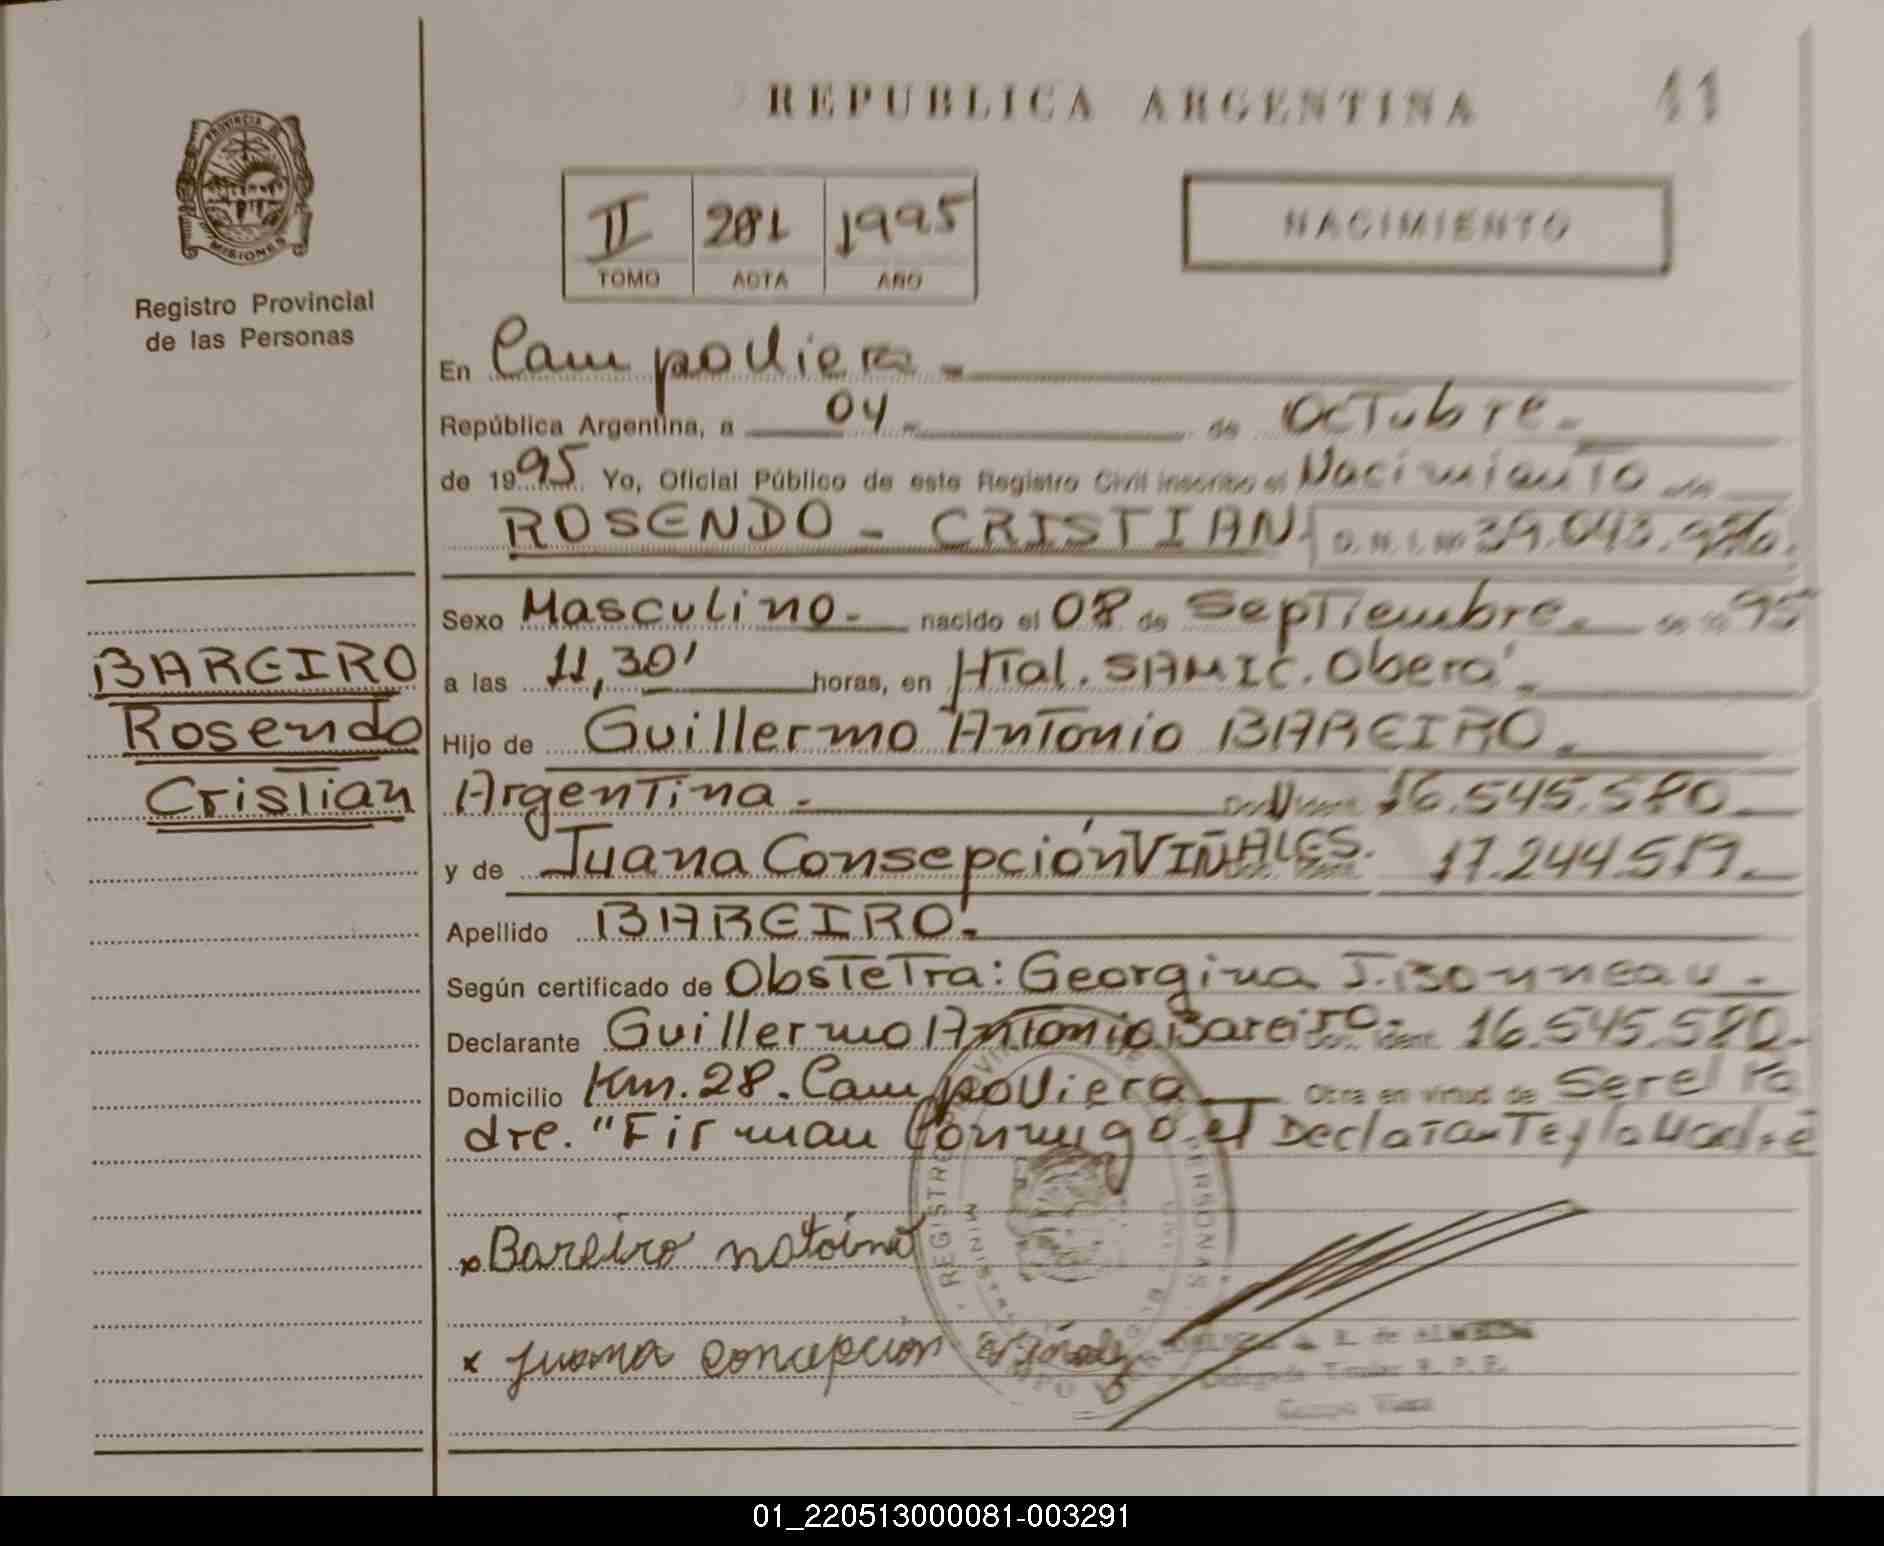 REPUBLICA ARGENTINA
11
PROVINCIA DE
MISIONES
Registro Provincial
de las Personas
II 281 1995
TOMO ACTA AÑO
NACIMIENTO
En Campo Viera.
República Argentina, a 04 de Octubre.
de 1995 Yo, Oficial Público de este Registro Civil inscribo el Nacimiento de
ROSENDO - CRISTIAN D.N.I. Nº 39.043.
Sexo Masculino. nacido el 08 de Septiembre. de 1995
a las 11,30' horas, en HTal. SAMIC. Oberá.
Hijo de Guillermo Antonio BAREIRO.
Argentina. Doc. Ident. 16.545.580
y de Juana Consepción VIÑALES. Doc. Ident. 17.244.519.
Apellido BAREIRO.
Según certificado de Obstetra: Georgina J. Bonneau.
Declarante Guillermo Antonio Bareiro. Doc. Ident. 16.545.580.
Domicilio Km. 28. Campo Viera Obra en virtud de Ser el Pa
dre. "Firman Conmigo el Declarante y la Madre
BAREIRO
Rosendo
Cristian
x Bareiro
x juana concepcion viñales
REGISTRO PERSONAS
R. de ALMEIDA
Delegada Titular R. P. P.
Campo Viera
01_220513000081-003291